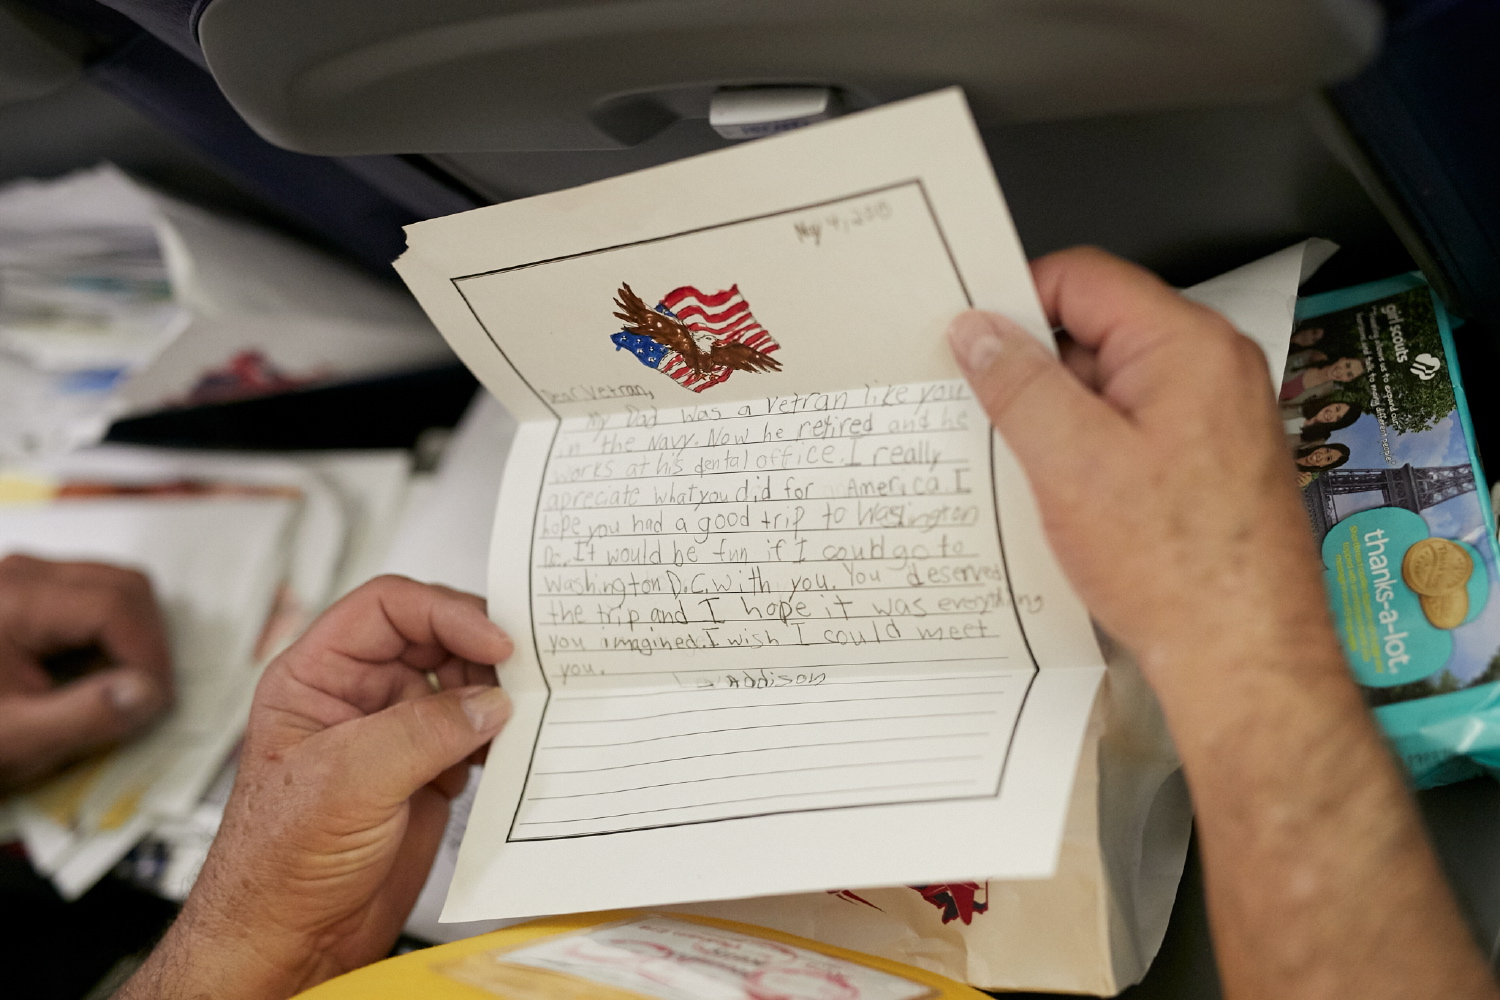 May 4,
Dear Vetran,
My Dad was a Vetran like you
in the Navy. Now he retired and he
works at his dental office. I really
apreciate what you did for America. I
hope you had a good trip to Washington
Dc. It would be fun if I could go to
Washington D.C. with you. You deserved
the trip and I hope it was everything
you imagined. I wish I could meet
you.
Addison
girl scouts
thanks-a-lot.